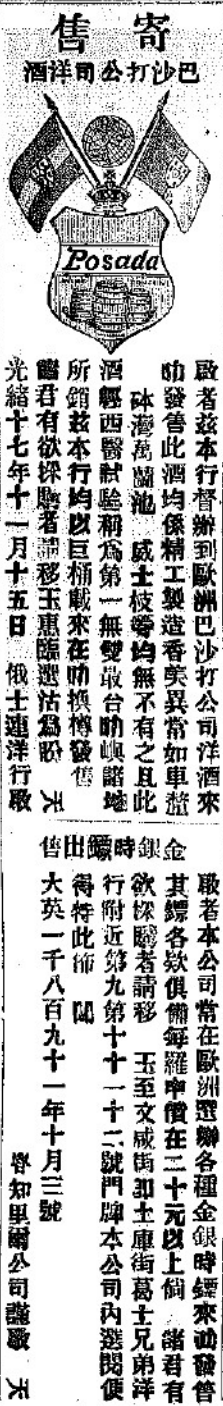 寄售
巴沙打公司洋酒
Posada
啟者茲本行督辦到歐洲巴沙打公司洋酒來
叻發售此酒均係精工製造香美異常如車釐
砵濃萬蘭池 威士枝等均無不有之且此
酒經西醫試驗稱為第一無雙最合叻嶼諸埠
所銷茲本行均以巨桶載來在叻換樽發售
諸君有欲採購者請移玉惠臨選沽為盼 天
光緒十七年十一月十五日 俄士連洋行啟
金銀時鏢出售
啟者本公司常在歐洲選辦各種金銀時鏢來叻發售
其鏢各欵俱備每羅申價在二十元以上倘 諸君有
欲採購者請移 玉至文咸街即土庫街葛士兄弟洋
行附近第九第十十一十二號門牌本公司內選閱便
得特此佈 聞
大英一千八百九十一年十月三號
知里爾公司謹啟 天